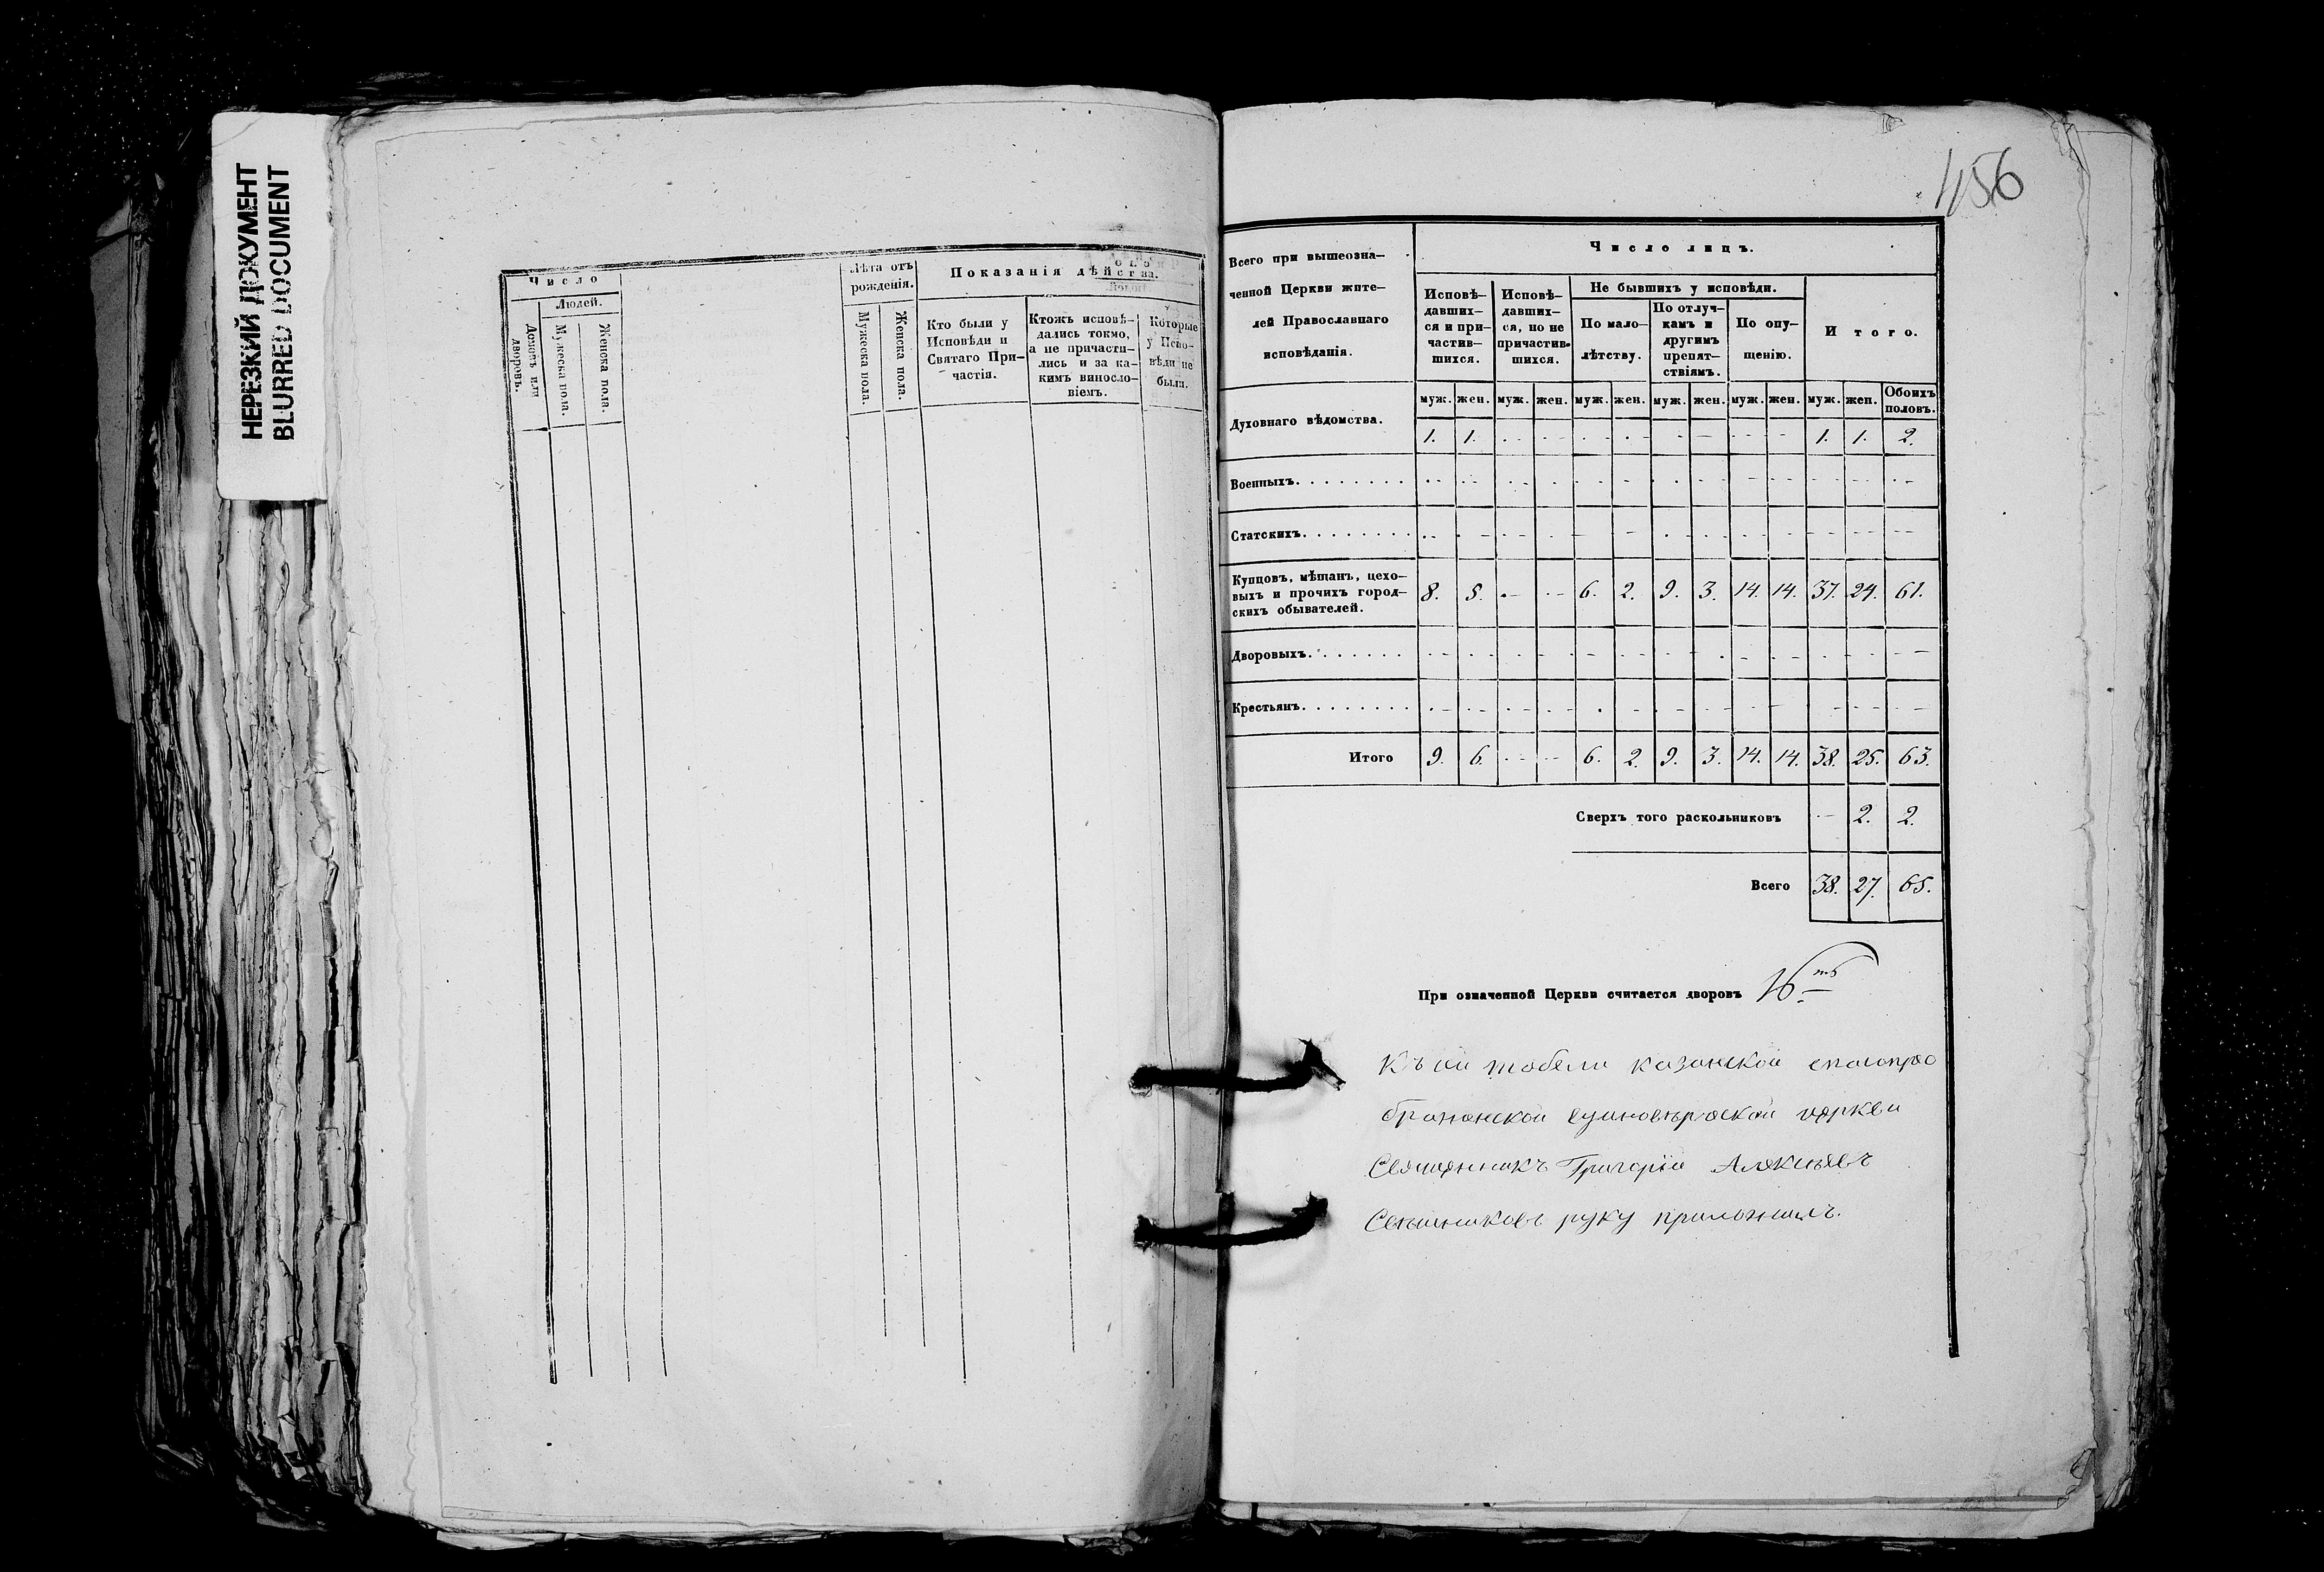 НЕРЕЗКИЙ ДОКУМЕНТ
BLURRED DOCUMENT
Число
Людей.
Домовъ или дворовъ.
Мужеска пола.
Женска пола.
Лѣта отъ рожденія.
Мужеска пола.
Женска пола.
Показанія дѣйства.
Кто были у
Исповѣди и
Святаго При-
частія.
Ктожъ исповѣ-
дались токмо,
а не причасти-
лись и за ка-
кимъ винносло-
віемъ.
Которые
у Испо-
вѣди не
были.
456
Всего при вышеозна-
ченной Церкви жите-
лей Православнаго
исповѣданія.
Число лицъ.
Исповѣ-
давших-
ся и при-
частив-
шихся.
Исповѣ-
давших-
ся, но не
причастив-
шихся.
Не бывшихъ у исповѣди.
По мало-
лѣтству.
По отлуч-
камъ и
другимъ
препят-
ствіямъ.
По опу-
щенію.
Итого.
муж. жен. муж. жен. муж. жен. муж. жен. муж. жен. муж. жен. Обоихъ половъ.
Духовнаго вѣдомства. 1. 1. 1. 1. 2.
Военныхъ.
Статскихъ.
Купцовъ, мѣщанъ, цехо-
выхъ и прочихъ город-
скихъ обывателей. 8. 5. 6. 2. 9. 3. 14. 14. 37. 24. 61.
Дворовыхъ.
Крестьянъ.
Итого 9. 6. 6. 2. 9. 3. 14. 14. 38. 25. 63.
Сверхъ того раскольниковъ — 2. 2.
Всего 38. 27. 65.
При означенной Церкви считается дворовъ 16ть
Къ сей табели казанской спасопрео
браженской единовѣрческой церкви
Священникъ Григорій Алексѣевъ
Свѣшниковъ руку приложилъ.